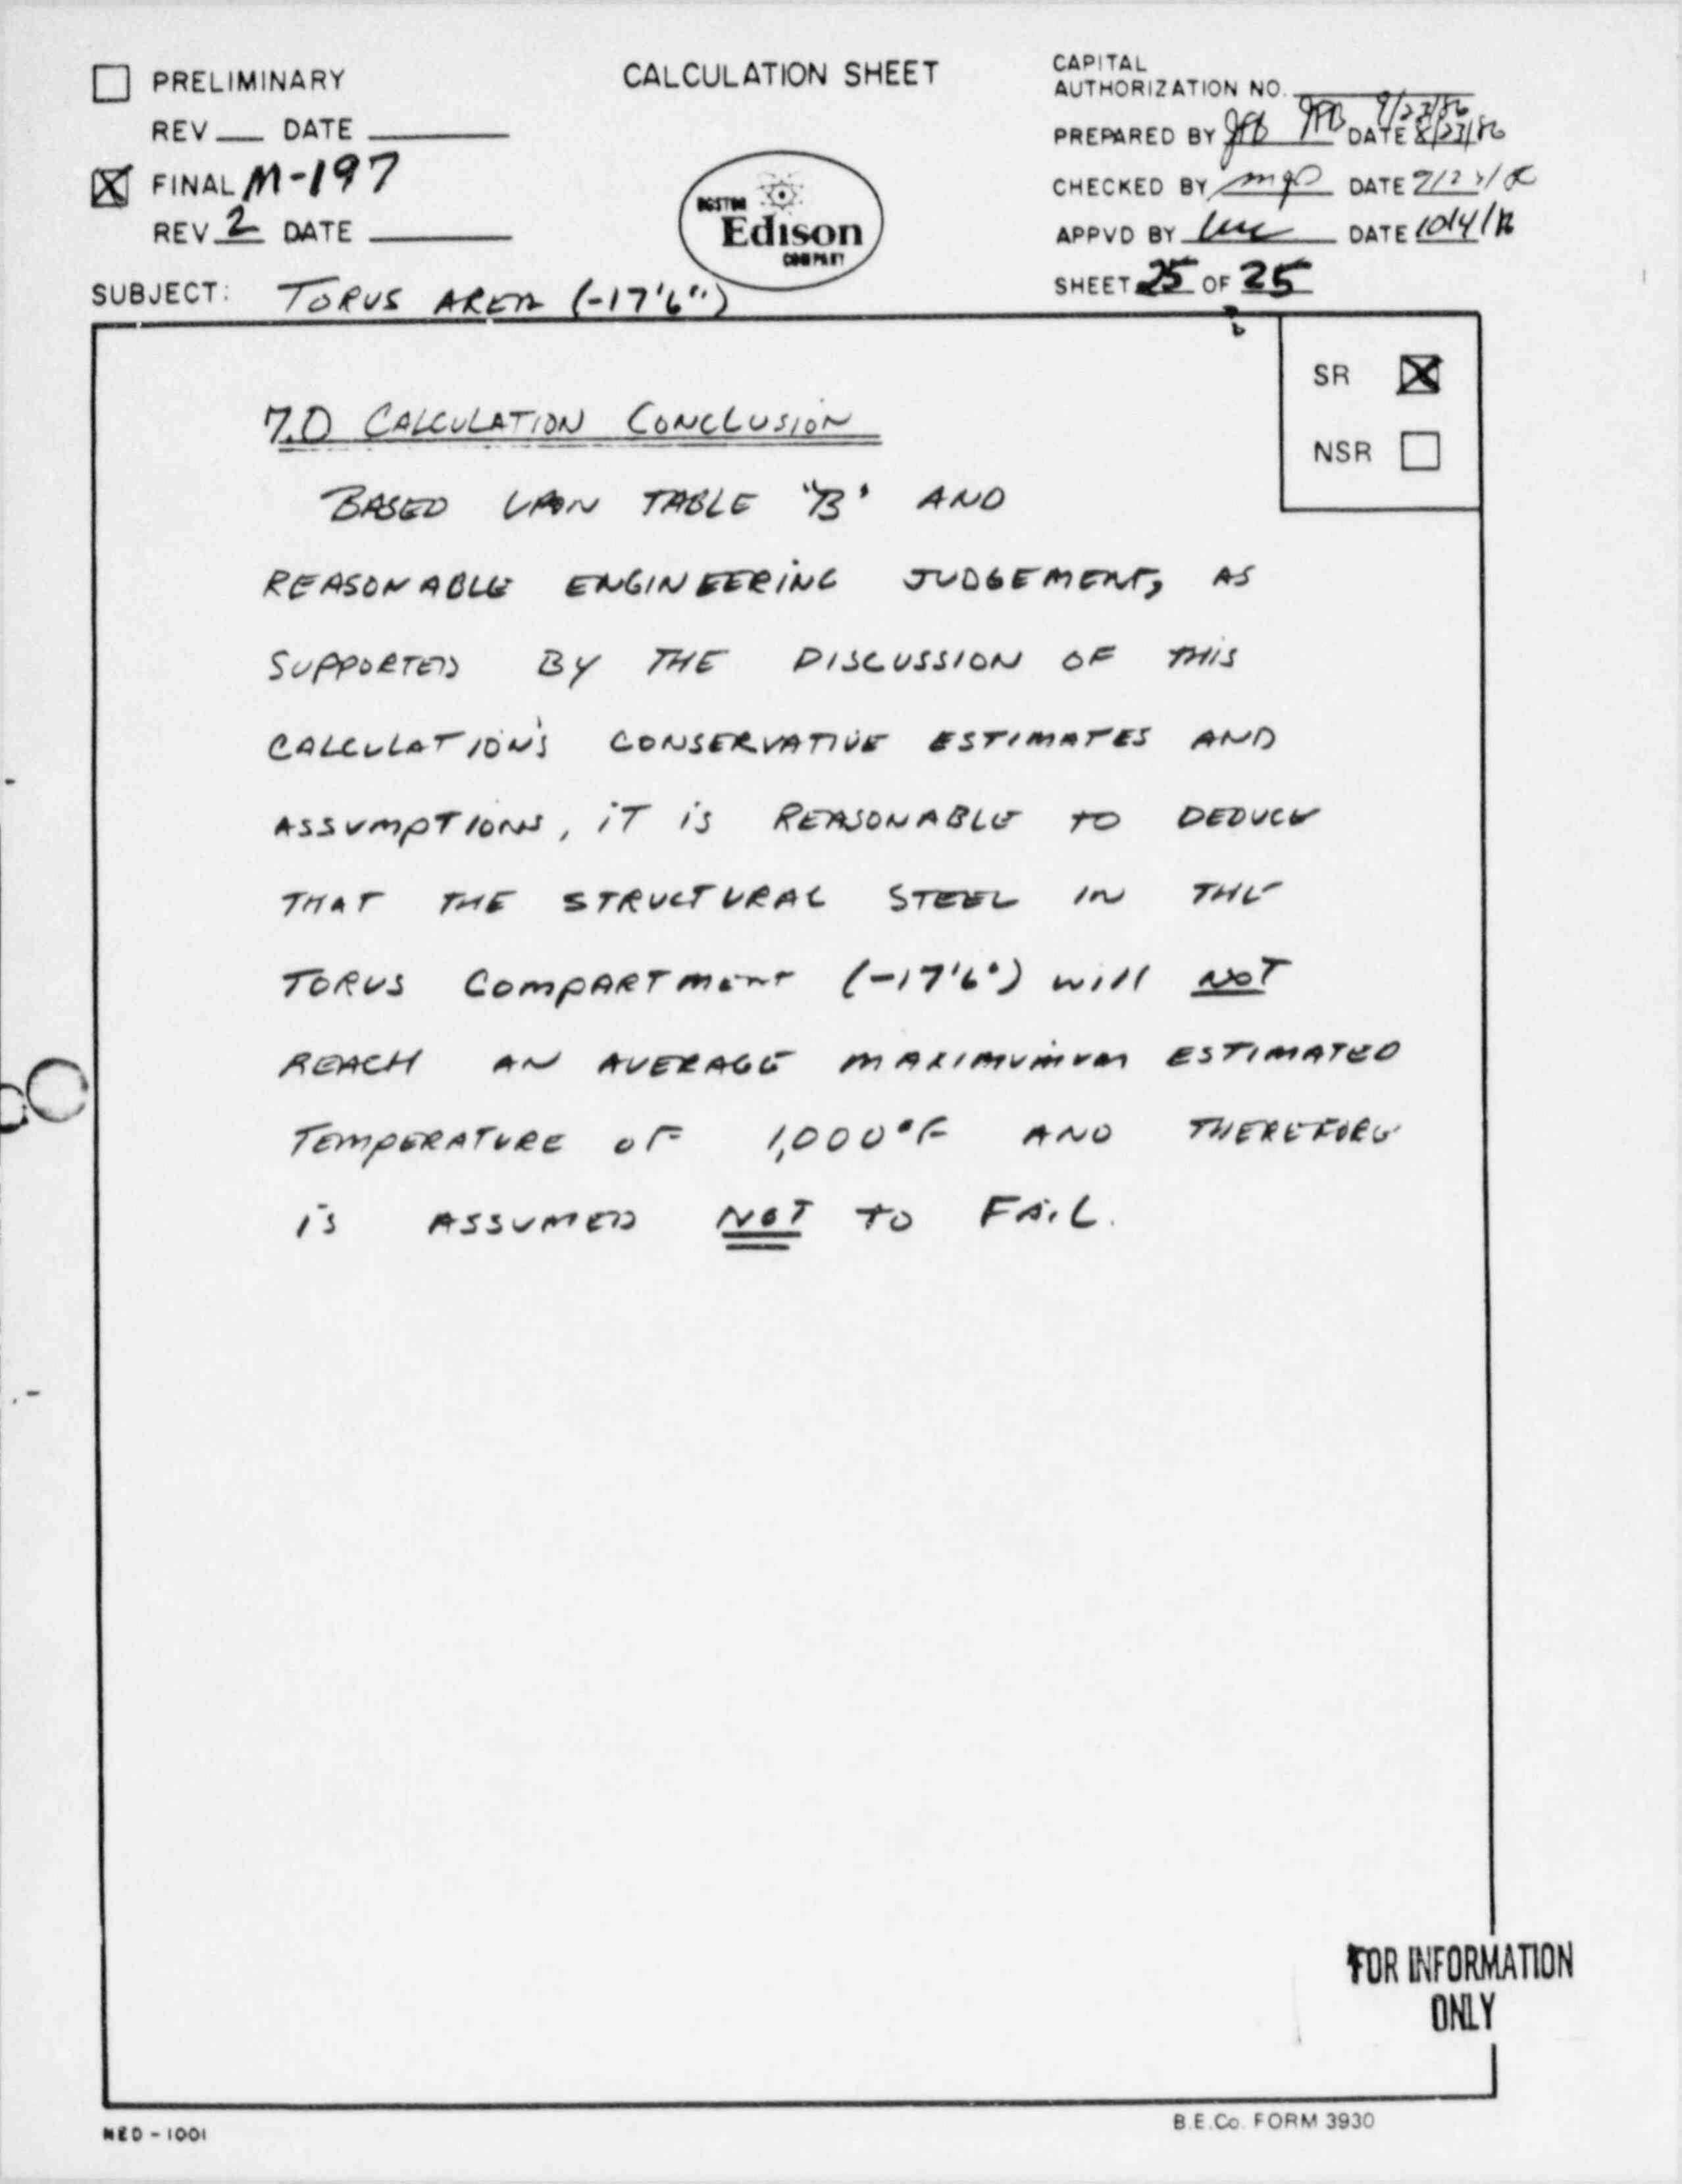 PRELIMINARY
REV DATE
FINAL M-197
REV 2 DATE
CALCULATION SHEET
BOSTON
Edison
COMPANY
CAPITAL
AUTHORIZATION NO.
9/23/86
PREPARED BY JFB JFB DATE 8/23/86
CHECKED BY DATE
APPVD BY DATE
SHEET 25 OF 25
SUBJECT: TORUS AREA (-17'6")
SR
NSR
7.0 CALCULATION CONCLUSION
BASED UPON TABLE "B" AND
REASONABLE ENGINEERING JUDGEMENT, AS
SUPPORTED BY THE DISCUSSION OF THIS
CALCULATION'S CONSERVATIVE ESTIMATES AND
ASSUMPTIONS, IT IS REASONABLE TO DEDUCE
THAT THE STRUCTURAL STEEL IN THE
TORUS COMPARTMENT (-17'6") will NOT
REACH AN AVERAGE MAXIMUMUM ESTIMATED
TEMPERATURE OF 1,000°F AND THEREFORE
IS ASSUMED NOT TO FAIL.
FOR INFORMATION
ONLY
NED-1001
B.E.Co. FORM 3930